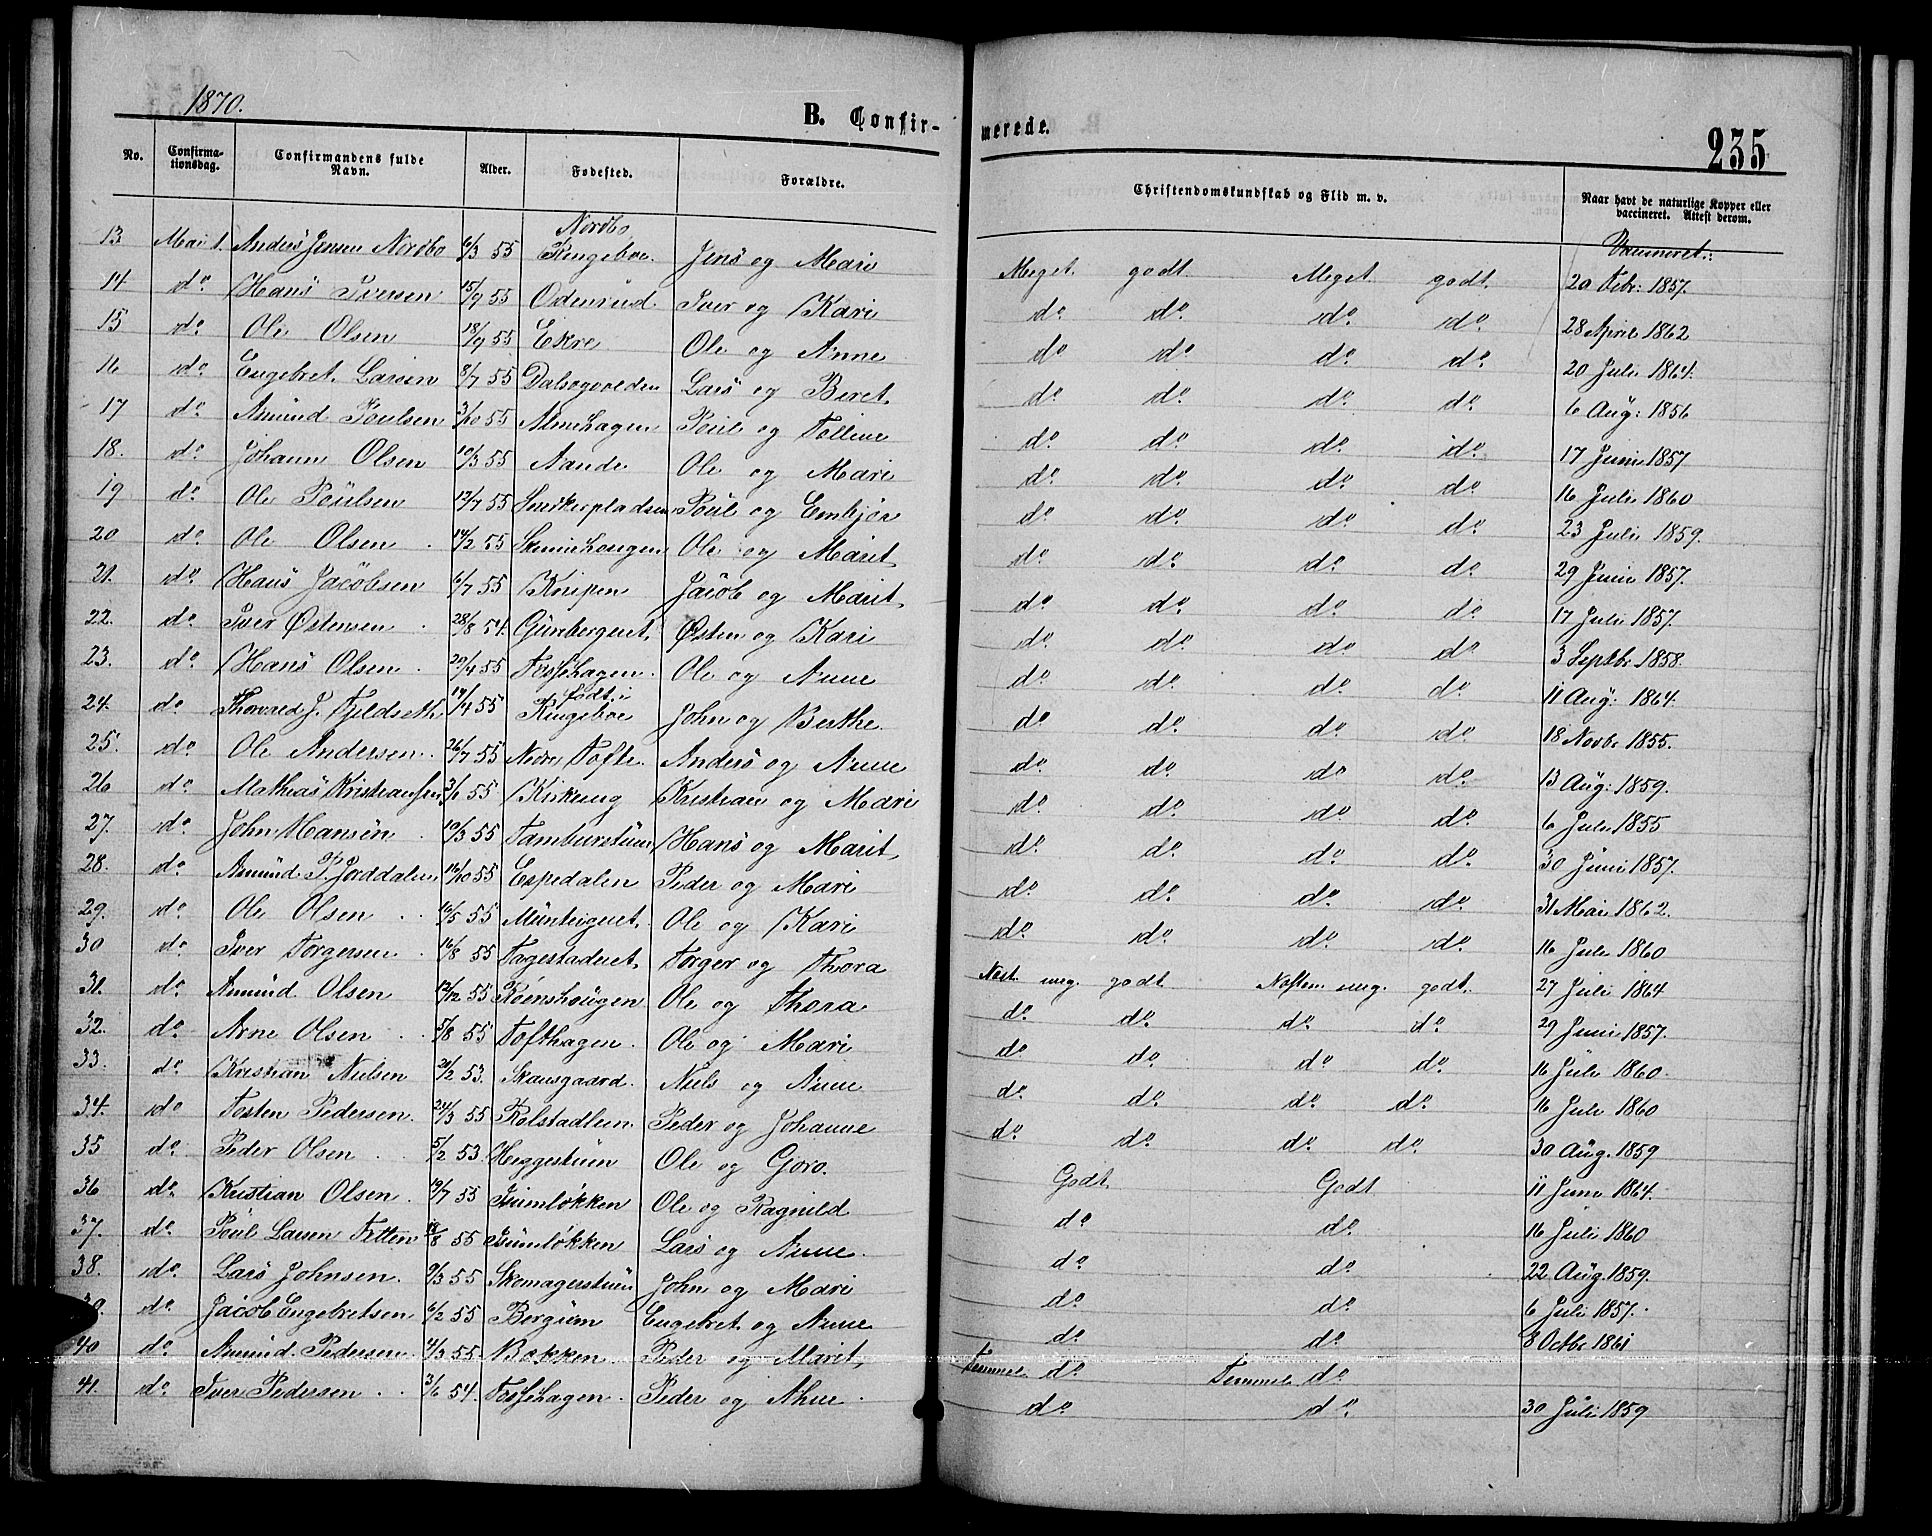 1870.
B. Confir-
merede.
235
No. Confirma-tionsdag. Confirmandens fulde Navn. Alder. Fødested. Forældre. Christendomskundskab og Flid m. v. Naar havt de naturlige Kopper eller vaccineret. Attest derom.
Nordbo
Vaccineret:
13 Mai 1. Anders Jensen Nordbo 6/3 55 Ringeboe. Jens og Mari Meget godt Meget godt. 20 Febr: 1857.
14. do Hans Iversen 15/9 55 Odenrud. Iver og Kari do. do. do. do. 28 April 1862
15 do. Ole Olsen 18/9 55 Ekre Ole og Anne do. do. do. do. 20 Juli 1864.
16 do. Engebret. Larsen 8/7 55 Dalsegvolden Lars og Beret. do. do. do. do. 6 Aug: 1856
17 do. Amund Poulsen 3/10 55 Almehagen Poul og Olline do. do. do. do. 17 Juni 1857
18. do. Johannes Olsen 10/3 55 Aande. Ole og Mari do. do. do. do. 16 Juli 1860
19 do. Ole Poulsen 12/7 55 Snekkerpladsen Poul og Embjør do. do. do. do. 23 Juli 1859.
20 do. Ole Olsen 14/2 55 Ole og Marit do. do. do. do. 29 Juni 1857.
21. do. Hans Jacobsen 6/7 55 Knipen Jacob og Marit. do. do. do. do. 17 Juli 1857.
22. do. Iver Østensen 28/8 54. Østen og Kari do. do. do. do. 3 Septbr 1858.
23. do. Hans Olsen 20/4 55 Fossehagen. Ole og Anne do. do. do. do. 11 Aug: 1864.
født i
24. do Thorvald J. Fjeldseth 14/4 55 Ringeboe John og Berthe. do. do. do. do. 18 Novbr 1855.
25. do. Ole Andersen. 26/7 55 Nedre Tofte. Anders og Anne do. do. do. do. 13 Aug: 1859.
26 do. Mathias Kristiansen 3/6 55 Kirkeng Kristian og Mari do. do. do. do. 6 Juli 1855
27. do. John Hansen 10/3 55 Tamburstuen Hans og Marit do. do. do. do. 30 Juni 1857.
28. do. Amund P. Jorddalen 16/10 55 Espedalen Peder og Mari do. do. do. do. 31 Mai 1862.
29. do. Ole Olsen 16/5 55 Ole og Kari do. do. do. do. 16 Juli 1860
30 do. Iver Torgersen 16/8 55 Fagestadeiet. Torger og Thora Nest. meg. godt Nesten meg. godt. 27 Juli 1864
31. do. Amund Olsen 12/12 55 Ole og Thora do. do. do. do. 29 Juni 1857.
32. do. Arne Olsen 5/8 55 Tofthagen. Ole og Mari do. do. do. do. 16 Juli 1860.
33. do. Kristian Nielsen 21/2 53. Skansgaard. Niels og Anne do. do. do. do. 16 Juli 1860
34. do Tosten Pedersen. 24/3 55 Rolstadlien. Peder og Johanne do. do. do. do. 30 Aug. 1859
35 do. Peder Olsen 5/2 53. Heggestuen Ole og Goro. Godt Godt 11 Juni 1864.
36 do. Kristian Olsen. 19/7 55 Isumløkken Ole og Ragnild do. do. 16 Juli 1860
37. do. Poul Larsen Tretten /8 55 Isumløkken Lars og Anne. do. do. 22 Aug. 1859.
38. do. Lars Johnsen. 9/3 55 Skomagerstuen John og Mari do. do. 6 Juli 1857.
39. do. Jacob Engebretsen 6/2 55 Bergum Engebret og Anne do. do. 8 Octbr 1861
40 do. Amund Pedersen 4/3 55 Bakken Peder og Marit. Temmel. do. Temmel. do.
41. do. Iver Pedersen 3/6 54. Fossehagen. Peder og Anne. do. do. 30 Juli 1859